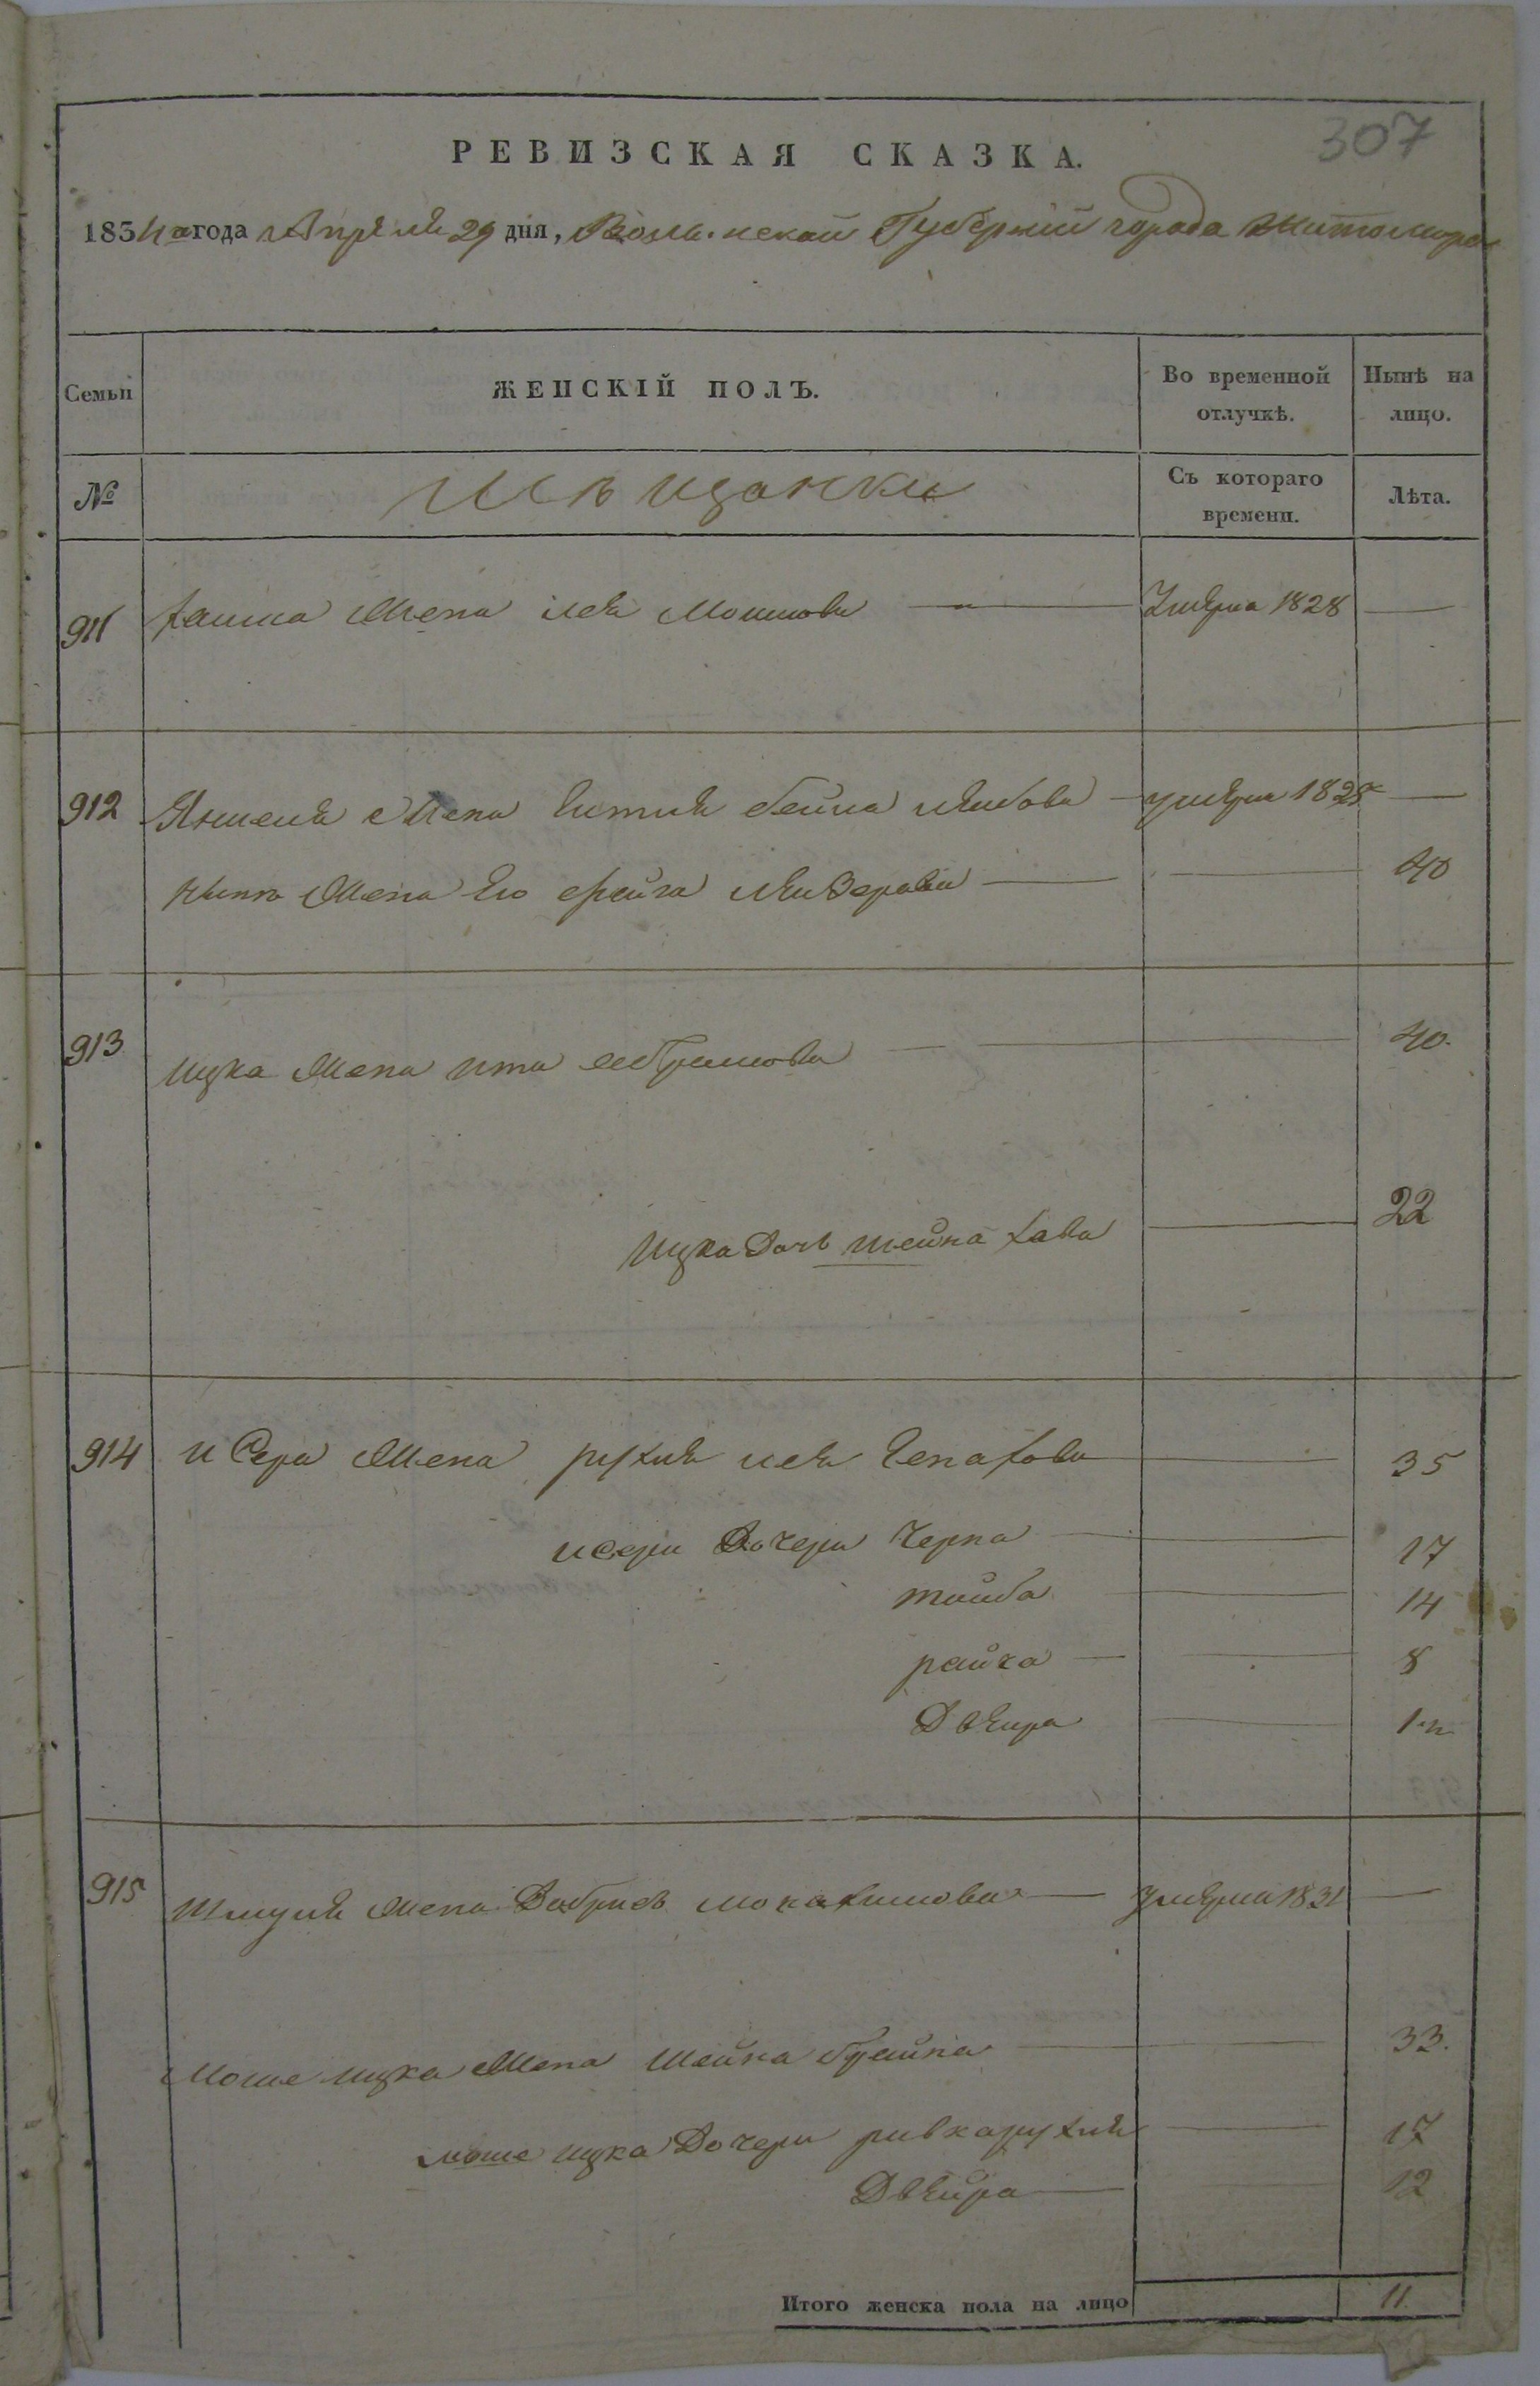 307
РЕВИЗСКАЯ СКАЗКА.
1834го года Апреля 29 дня, Волынской Губернии города Житомира
Семьи
ЖЕНСКІЙ ПОЛЪ.
Во временной отлучкѣ.
Нынѣ на лицо.
№
Мѣщанки
Съ котораго времени.
Лѣта.
911 Хаима Жена Лея Мошкова — Умерла 1828 —
912 Жена бейла Лейбова — умерла 1828 —
Нынѣ Жена Его фейга — — 40
913 Ицка Жена ита Абрамова — — 40.
Ицка Дочь шейна хава — 22
914 Исера Жена рухля лея — 35
Исера Дочери Черна — 17
тайба — 14
райза — 8
Двейра — 1 п
915 Шмуля Жена — умерла 1831 —
Моше ицка Жена Шейна брайна — 33.
моше ицка Дочери ривка рухля — 17
Двейра — 12
Итого женска пола на лицо 11.